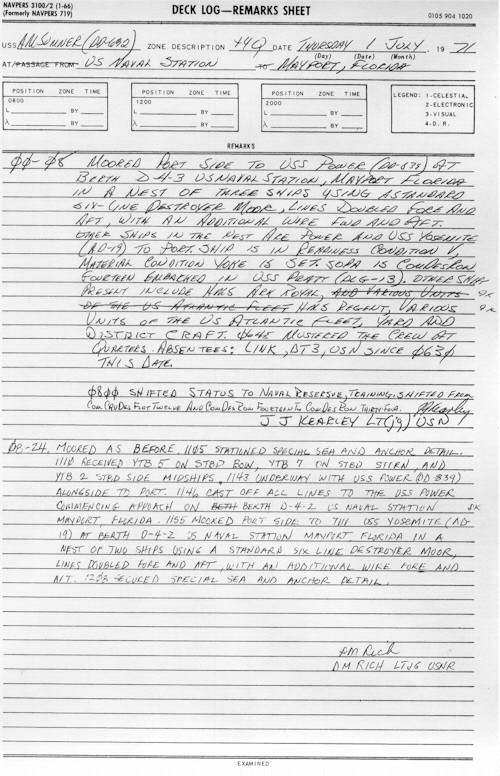 NAVPERS 3100/2 (1-66)
(Formerly NAVPERS 719)
DECK LOG—REMARKS SHEET
0105 904 1020
USS A.M. SUMNER (DD-692) ZONE DESCRIPTION +4Q DATE THURSDAY 1 JULY 19 71
(Day) (Date) (Month)
AT/PASSAGE FROM US NAVAL STATION TO MAYPORT, FLORIDA
POSITION ZONE TIME
0800
L BY
λ BY
POSITION ZONE TIME
1200
L BY
λ BY
POSITION ZONE TIME
2000
L BY
λ BY
LEGEND: 1-CELESTIAL
2-ELECTRONIC
3-VISUAL
4-D. R.
REMARKS
00-08 MOORED PORT SIDE TO USS POWER (DD-839) AT
BERTH D-4-3 US NAVAL STATION, MAYPORT FLORIDA
IN A NEST OF THREE SHIPS USING A STANDARD
SIX-LINE DESTROYER MOOR, LINES DOUBLED FORE AND
AFT, WITH AN ADDITIONAL WIRE FWD AND AFT.
OTHER SHIPS IN THE NEST ARE POWER AND USS YOSEMITE
(AD-19) TO PORT. SHIP IS IN READINESS CONDITION V,
MATERIAL CONDITION YOKE IS SET. SOPA IS COMDESRON
FOURTEEN EMBARKED IN USS PRATT (DLG-13). OTHER SHIPS
PRESENT INCLUDE HMS ARK ROYAL, AND VARIOUS UNITS
OF THE US ATLANTIC FLEET HMS REGENT, VARIOUS
UNITS OF THE US ATLANTIC FLEET, YARD AND
DISTRICT CRAFT. 0645 MUSTERED THE CREW AT
QUARTERS. ABSENTEES: LINK, DT3, USN SINCE 0630
THIS DATE.
0800 SHIFTED STATUS TO NAVAL RESERVE, TRAINING. SHIFTED FROM
COMCRUDESFLOT TWELVE AND COMDESRON FOURTEEN TO COMDESRON THIRTY FOUR. JJ Kearley
J J KEARLEY LT(jg) USN
08-24. MOORED AS BEFORE. 1105 STATIONED SPECIAL SEA AND ANCHOR DETAIL.
1110 RECEIVED YTB 5 ON STBD BOW, YTB 7 ON STBD STERN, AND
YTB 2 STBD SIDE MIDSHIPS. 1143 UNDERWAY WITH USS POWER (DD 839)
ALONGSIDE TO PORT. 1146 CAST OFF ALL LINES TO THE USS POWER
COMMENCING APPROACH ON BETH BERTH D-4-2 US NAVAL STATION
MAYPORT, FLORIDA. 1155 MOORED PORT SIDE TO THE USS YOSEMITE (AD-
19) AT BERTH D-4-2 US NAVAL STATION MAYPORT FLORIDA IN A
NEST OF TWO SHIPS USING A STANDARD SIX LINE DESTROYER MOOR,
LINES DOUBLED FORE AND AFT, WITH AN ADDITIONAL WIRE FORE AND
AFT. SECURED SPECIAL SEA AND ANCHOR DETAIL.
DM Rich
DM RICH LTJG USNR
EXAMINED